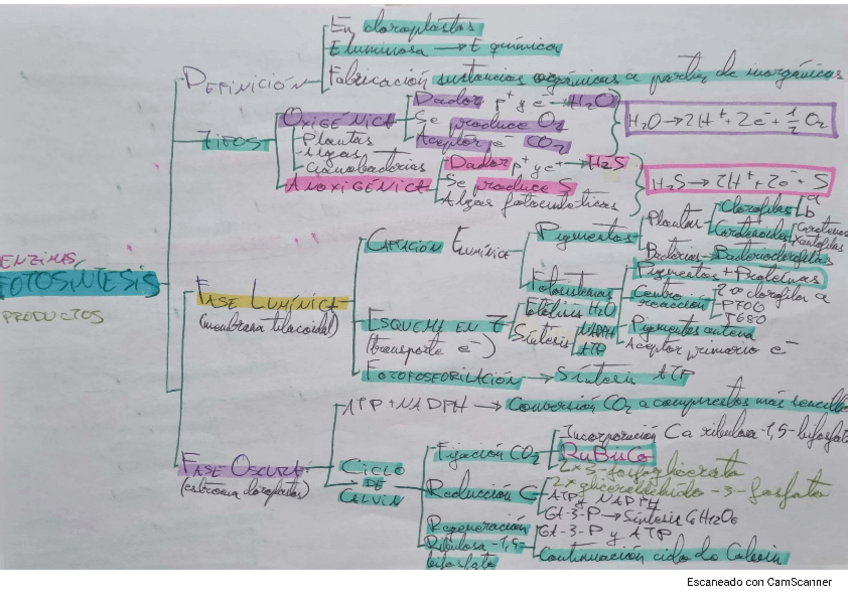 En cloroplastos
E luminosa → E química
DEFINICIÓN
Fabricación sustancias orgánicas a partir de inorgánicas
TIPOS
OXIGÉNICA
Dador p+ y e- → H2O
Se produce O2
Aceptor e- CO2
H2O → 2H+ + 2e- + 1/2 O2
Plantas
Algas
Cianobacterias
ANOXIGÉNICA
Dador p+ y e- → H2S
Se produce S
Algas fotosintéticas
H2S → 2H+ + 2e- + S
ENZIMAS
FOTOSÍNTESIS
PRODUCTOS
FASE LUMÍNICA
(membrana tilacoidal)
CAPTACIÓN E LUMÍNICA
Pigmentos
Plantas
Clorofilas
a
b
Carotenoides
Carotenos
Xantofilas
Bacterias → Bacterioclorofilas
Fotosistemas
Pigmentos + Proteínas
Centro reacción
2 clorofilas a
P700
P680
Pigmentos antena
Aceptor primario e-
ESQUEMA EN Z
(transporte e-)
Fotólisis H2O
Síntesis
NADPH
ATP
FOTOFOSFORILACIÓN → Síntesis ATP
FASE OSCURA
(estroma cloroplastos)
ATP + NADPH → Conversión CO2 a compuestos más sencillos
CICLO
DE
CALVIN
Fijación CO2
Incorporación C a ribulosa-1,5-bifosfato
RuBisCo
2x3-fosfoglicerato
Reducción C
2x gliceraldehído-3-fosfato
ATP y NADPH
GA-3-P → Síntesis C6H12O6
Regeneración
Ribulosa-1,5-
bifosfato
GA-3-P y ATP
Continuación ciclo de Calvin
Escaneado con CamScanner